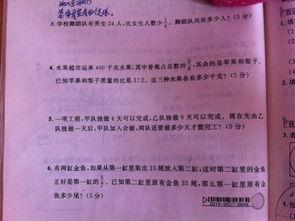 3.学校舞蹈队有男生24人,比女生人数少,舞蹈队共有多少人?(5分)
4.水果超市运来400千克水果,其中香蕉占总数的,其余的是苹果和梨子,
已知苹果和梨子质量的比是3:2,这三种水果各有多少千克?(5分)
5.一项工程,甲队独做4天可以完成,乙队独做6天可以完成。现在先由乙
队独做一天后,甲队加入合做,两队还要做多少天才能完工?(5分)
6.有两缸金鱼,如果从第一缸里取出15尾放入第二缸,这时第二缸里的金鱼
正好是第一缸的,已知第二缸里原有金鱼35尾,那么第一缸里原有金
鱼多少尾?(5分)